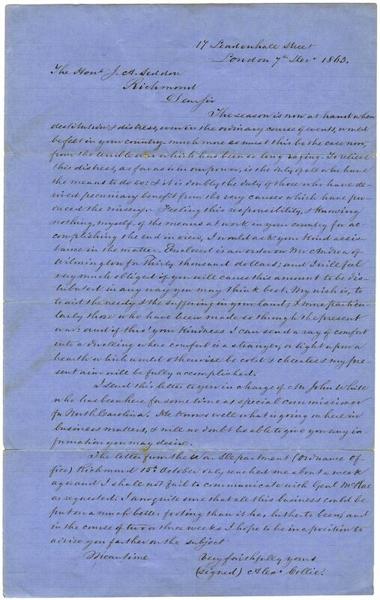 17 Leadenhall Street
London 7th Decr 1863.
The Honl J. A. Seddon
Richmond
Dear Sir
The season is now at hand when
destitution & distress, even in the ordinary course of events, would
be felt in your country. much more so must this be the case now,
from the terrible war which has been so long raging. To relieve
this distress, as far as in our power, is the duty of all who have
the means to do so: & it is doubly the duty of those who have de-
rived pecuniary benefit from the very causes which have pro-
duced the misery. Feeling this responsibility, & knowing
nothing, myself, of the means at work in your country for ac-
complishing the end in view, I would ask your kind assis-
tance in the matter. Enclosed is an order on Mr Andrea of
Wilmington for Thirty thousand dollars; and I will feel
very much obliged if you will cause this amount to be dis-
tributed in any way you may think best. My wish is, to
to assist the needy & the suffering in your land; & more particu-
larly those who have been made so through the present
war: and if thro' your kindness I can send a ray of comfort
into a dwelling where comfort is a stranger, or light upon a
hearth which would otherwise be cold & cheerless my pre-
sent aim will be fully accomplished.
I send this letter to you in charge of Mr John White
who has been here for some time as special commissioner
for North Carolina. He knows well what is going on here in
business matters, & will no doubt be able to give you any in-
formation you may desire.
The letter from the War Department (Ordnance of
fice) Richmond 15th October duly reached me about a week
ago and I shall not fail to communicate with Genl McRae
as requested. I am quite sure that all this business could be
put on a much better footing than it has hitherto been; and
in the course of two or three weeks I hope to be in a position to
advise you further on the subject
Meantime Very faithfully yours
(signed) Alexr Collie.